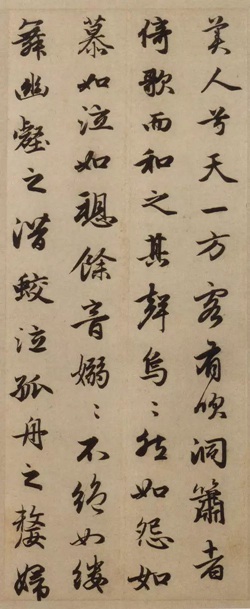 美人兮天一方客有吹洞簫者
倚歌而和之其聲烏〻然如怨如
慕如泣如𧫴餘音嫋〻不絶如縷
舞幽壑之潛蛟泣孤舟之嫠婦